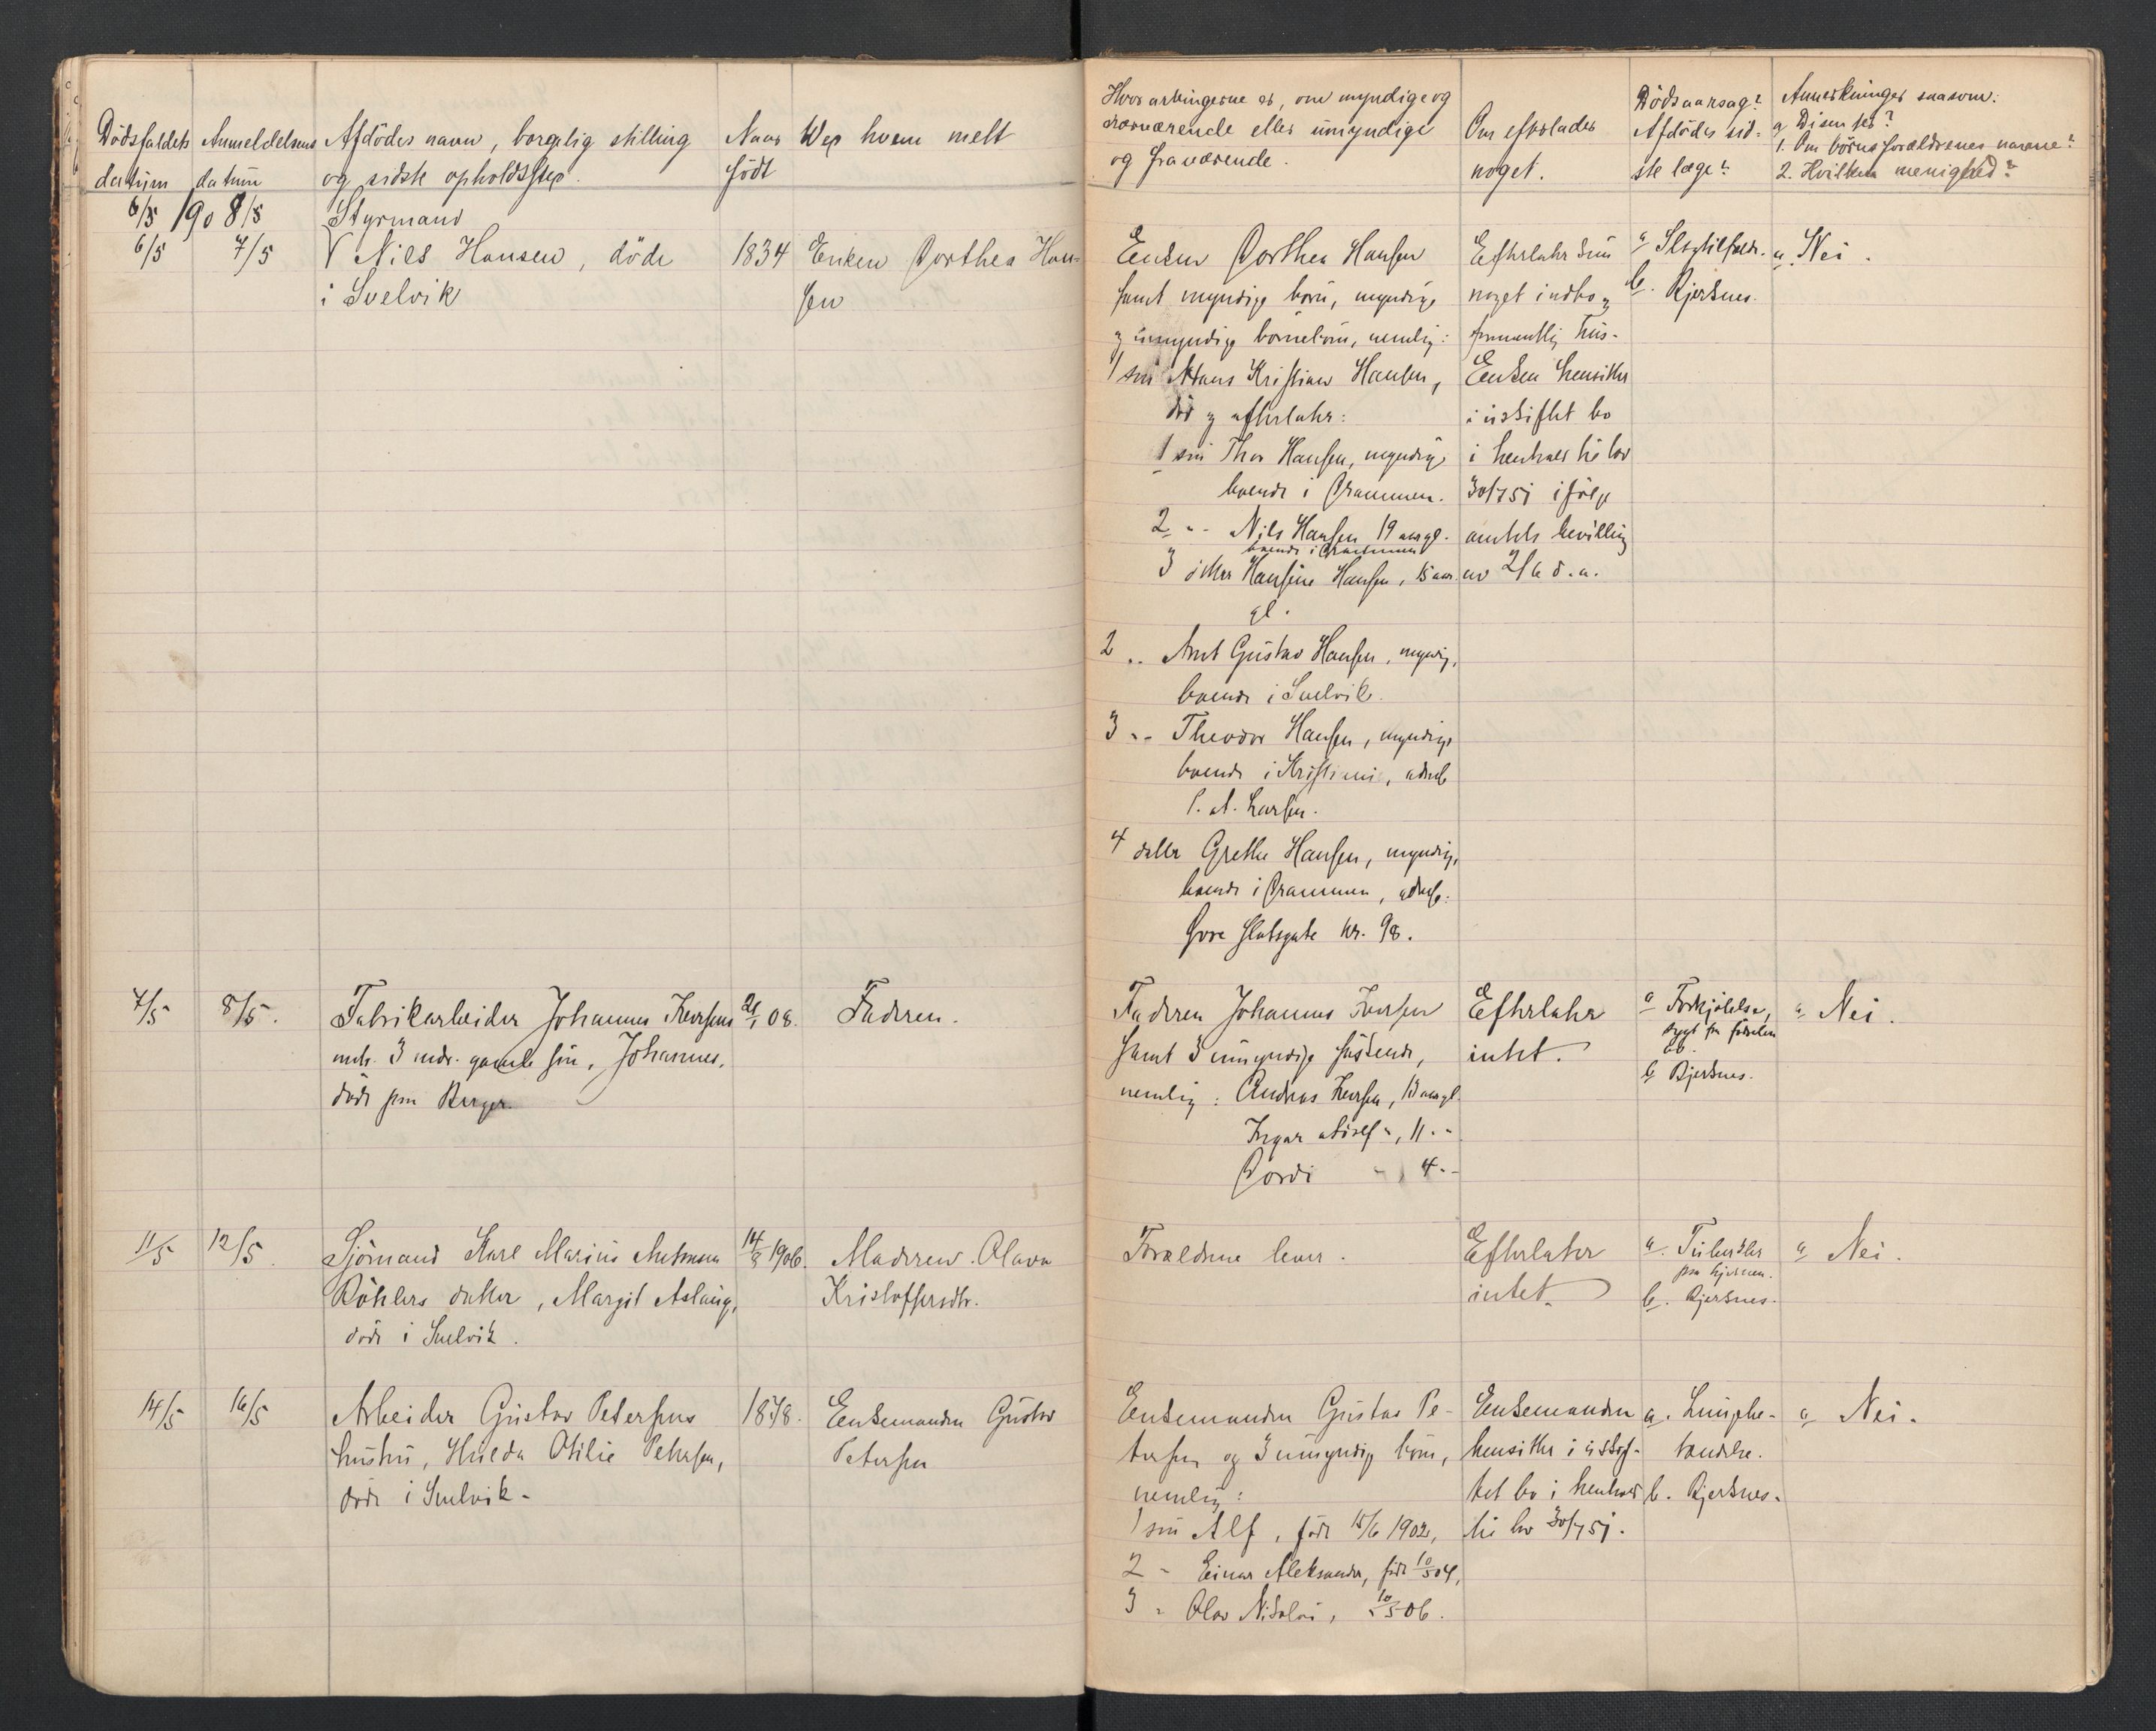 Dödsfaldets datum
Anmeldelsens datum
Afdödes navn, borgelig stilling
og sidste opholdssted.
Naar født
Ved hvem melt
6/5 1908 8/5
Styrmand
6/5
7/5
Nils Hansen, døde
i Svelvik
1834
Enken Dorthea Han-
sen
7/5
8/5.
Fabrikarbeider Johannes Iversens
3 mdr. gamle søn, Johannes,
døde paa Berger.
21/1 08.
Faderen.
11/5
12/5.
Sjömand Karl Marius
Röhlers datter, Margit Aslaug,
døde i Svelvik.
14/8 1906.
Moderen Olava
Kristoffersdtr.
14/5
16/5
Arbeider Gustav Petersens
hustru, Hulda Otilie Petersen,
døde i Svelvik.
1878.
Enkemanden Gustav
Petersen
Hvor arvingerne er, om myndige og
nærværende eller umyndige
og fraværende.
Om efterlades
noget.
Dödsaarsag?
Afdödes sid-
ste læge?
Anmerkninger saasom:
a, Disenter?
1. Om børns forældrenes navne?
2. Hvilken menighed?
Enken Dorthea Hansen
samt myndige børn, myndige
og umyndige børnebørn, nemlig:
1 søn Hans Kristian Hansen,
død og efterlater:
1 søn Thor Hansen, myndig
boende i Drammen.
2 " - Nils Hansen 19 aar gl.
boende i Drammen
3 datter Hansine Hansen, 15 aar
gl.
2 " Arnt Gustav Hansen, myndig,
boende i Svelvik.
3 " Theodor Hansen, myndig,
boende i Kristiania, adresse
Larsen.
4 datter Grethe Hansen, myndig,
boende i Drammen, adresse:
Øvre Slotsgate Nr. 98.
Efterlater kun
noget indbo og
formentlig hus.
Enken hensitter
i uskiftet bo
i henhold til lov
30/7 51 ifølge
amtets bevilling
av 2/6 d. a.
a Slagtilfælde.
b. Bjerknes.
a. Nei.
Faderen Johannes Iversen
samt 3 umyndige søskende,
nemlig: Andreas Iversen, 13 aar gl.
Ingar " -, 11 " -
Dordi " - 4 " -
Efterlater
intet.
a Forkjølelse,
sygt fra fødselen
av.
b Bjerknes.
a Nei.
Forældrene lever.
Efterlater
intet.
a. Tuberkler
paa hjernen.
b. Bjerknes.
a Nei.
Enkemanden Gustav Pe-
tersen og 3 umyndige børn,
nemlig:
1 søn Alf, født 15/6 1902,
2 - Einar Aleksander, født 10/5 04,
3 - Olav Nikolai, " 10/5 06.
Enkemanden
hensitter i uskif-
tet bo i henhold
til lov 30/7 51.
a. Lunge-
betændelse.
b. Bjerknes.
a Nei.